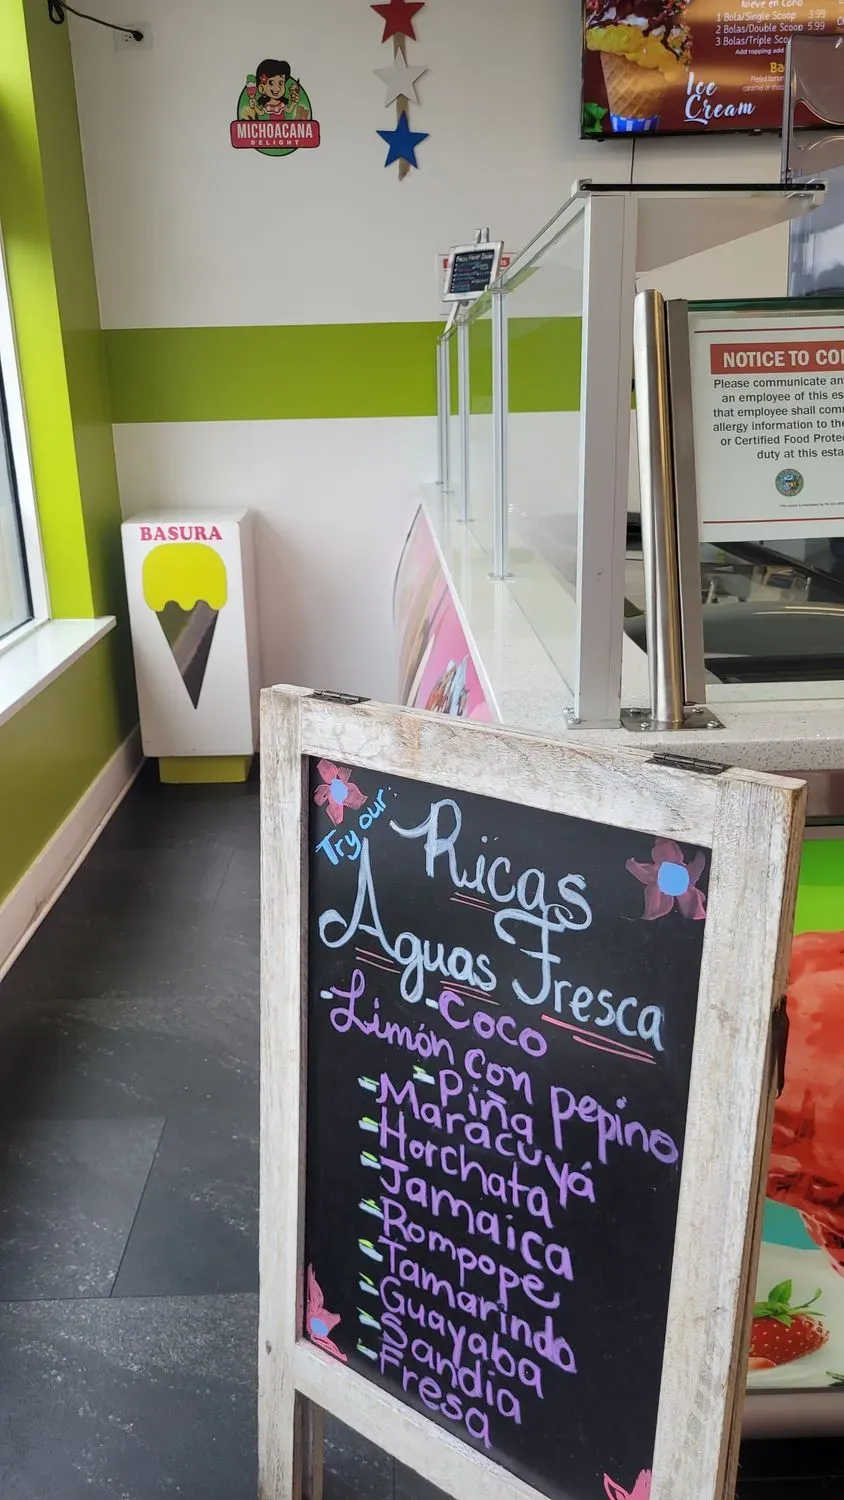 Nieve en Cono
1 Bola/Single Scoop 3.99
2 Bolas/Double Scoop 5.99
3 Bolas/Triple Scoo
Add topping add
Ba
Ice
Cream
MICHOACANA
DELIGHT
NOTICE TO CO
Please communicate an
an employee of this es
that employee shall com
allergy information to the
or Certified Food Prote
duty at this esta
BASURA
Try our:
Ricas
Aguas Fresca
-Coco
-Limón con pepino
-Piña
-Maracuyá
-Horchata
-Jamaica
-Rompope
-Tamarindo
-Guayaba
-Sandia
-Fresa